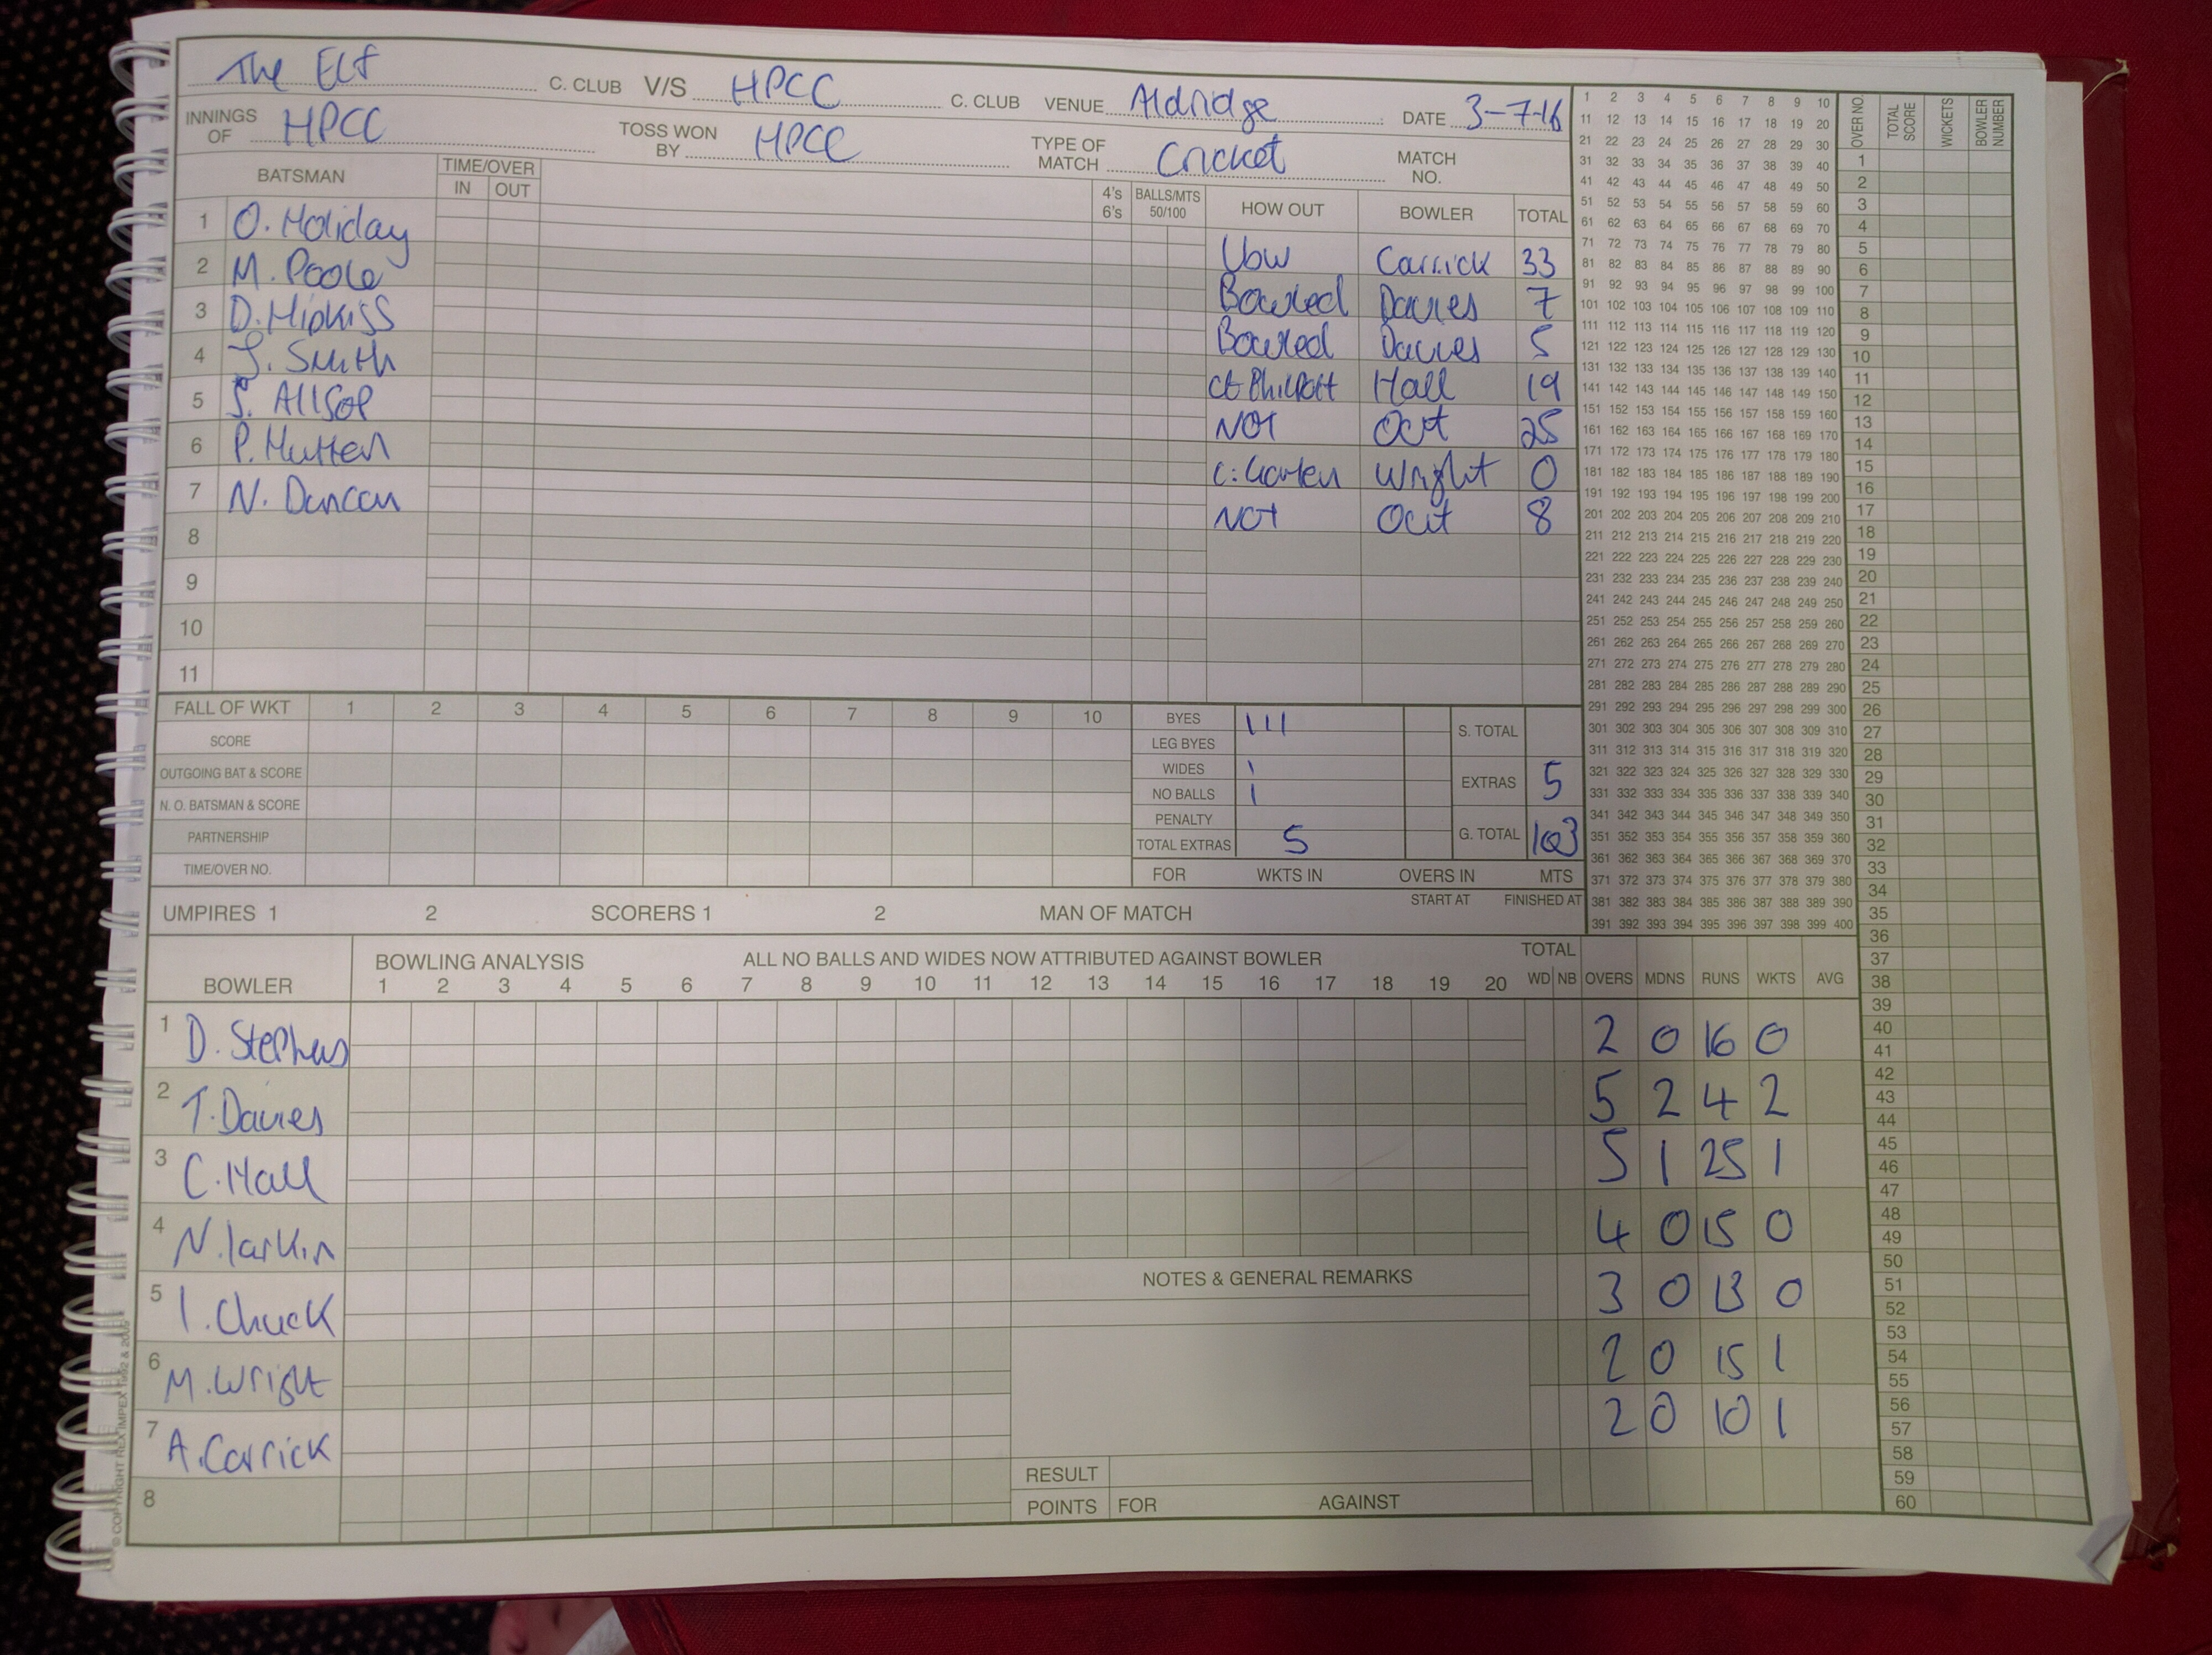 The Elf C. CLUB V/S HPCC C. CLUB VENUE Aldridge DATE 3-7-16
INNINGS OF HPCC TOSS WON BY HPCC TYPE OF MATCH Cricket MATCH NO.
BATSMAN TIME/OVER IN OUT 4's 6's BALLS/MTS 50/100 HOW OUT BOWLER TOTAL
1 O. Holiday lbw Carrick 33
2 M. Poole Bowled Davies 7
3 D. Hipkiss Bowled Davies 5
4 J. Smith ct Philpott Hall 19
5 S. Allsop NOT OUT 25
6 P. Hutten C. Wright 0
7 N. Duncan NOT OUT 8
8
9
10
11
FALL OF WKT 1 2 3 4 5 6 7 8 9 10
SCORE
OUTGOING BAT & SCORE
N. O. BATSMAN & SCORE
PARTNERSHIP
TIME/OVER NO.
BYES III S. TOTAL
LEG BYES
WIDES I EXTRAS 5
NO BALLS I
PENALTY G. TOTAL 103
TOTAL EXTRAS 5
FOR WKTS IN OVERS IN MTS
UMPIRES 1 2 SCORERS 1 2 MAN OF MATCH START AT FINISHED AT
BOWLER BOWLING ANALYSIS ALL NO BALLS AND WIDES NOW ATTRIBUTED AGAINST BOWLER TOTAL
1 2 3 4 5 6 7 8 9 10 11 12 13 14 15 16 17 18 19 20 WD NB OVERS MDNS RUNS WKTS AVG
1 D. Stephens 2 0 16 0
2 T. Davies 5 2 4 2
3 C. Hall 5 1 25 1
4 N. Larkin 4 0 15 0
5 I. Chuck 3 0 13 0
6 M. Wright 2 0 15 1
7 A. Carrick 2 0 10 1
8
NOTES & GENERAL REMARKS
RESULT
POINTS FOR AGAINST
© COPYRIGHT REX IMPEX 1992 & 2005
1 2 3 4 5 6 7 8 9 10
11 12 13 14 15 16 17 18 19 20
21 22 23 24 25 26 27 28 29 30
31 32 33 34 35 36 37 38 39 40
41 42 43 44 45 46 47 48 49 50
51 52 53 54 55 56 57 58 59 60
61 62 63 64 65 66 67 68 69 70
71 72 73 74 75 76 77 78 79 80
81 82 83 84 85 86 87 88 89 90
91 92 93 94 95 96 97 98 99 100
101 102 103 104 105 106 107 108 109 110
111 112 113 114 115 116 117 118 119 120
121 122 123 124 125 126 127 128 129 130
131 132 133 134 135 136 137 138 139 140
141 142 143 144 145 146 147 148 149 150
151 152 153 154 155 156 157 158 159 160
161 162 163 164 165 166 167 168 169 170
171 172 173 174 175 176 177 178 179 180
181 182 183 184 185 186 187 188 189 190
191 192 193 194 195 196 197 198 199 200
201 202 203 204 205 206 207 208 209 210
211 212 213 214 215 216 217 218 219 220
221 222 223 224 225 226 227 228 229 230
231 232 233 234 235 236 237 238 239 240
241 242 243 244 245 246 247 248 249 250
251 252 253 254 255 256 257 258 259 260
261 262 263 264 265 266 267 268 269 270
271 272 273 274 275 276 277 278 279 280
281 282 283 284 285 286 287 288 289 290
291 292 293 294 295 296 297 298 299 300
301 302 303 304 305 306 307 308 309 310
311 312 313 314 315 316 317 318 319 320
321 322 323 324 325 326 327 328 329 330
331 332 333 334 335 336 337 338 339 340
341 342 343 344 345 346 347 348 349 350
351 352 353 354 355 356 357 358 359 360
361 362 363 364 365 366 367 368 369 370
371 372 373 374 375 376 377 378 379 380
381 382 383 384 385 386 387 388 389 390
391 392 393 394 395 396 397 398 399 400
OVER NO. TOTAL SCORE WICKETS BOWLER NUMBER
1
2
3
4
5
6
7
8
9
10
11
12
13
14
15
16
17
18
19
20
21
22
23
24
25
26
27
28
29
30
31
32
33
34
35
36
37
38
39
40
41
42
43
44
45
46
47
48
49
50
51
52
53
54
55
56
57
58
59
60